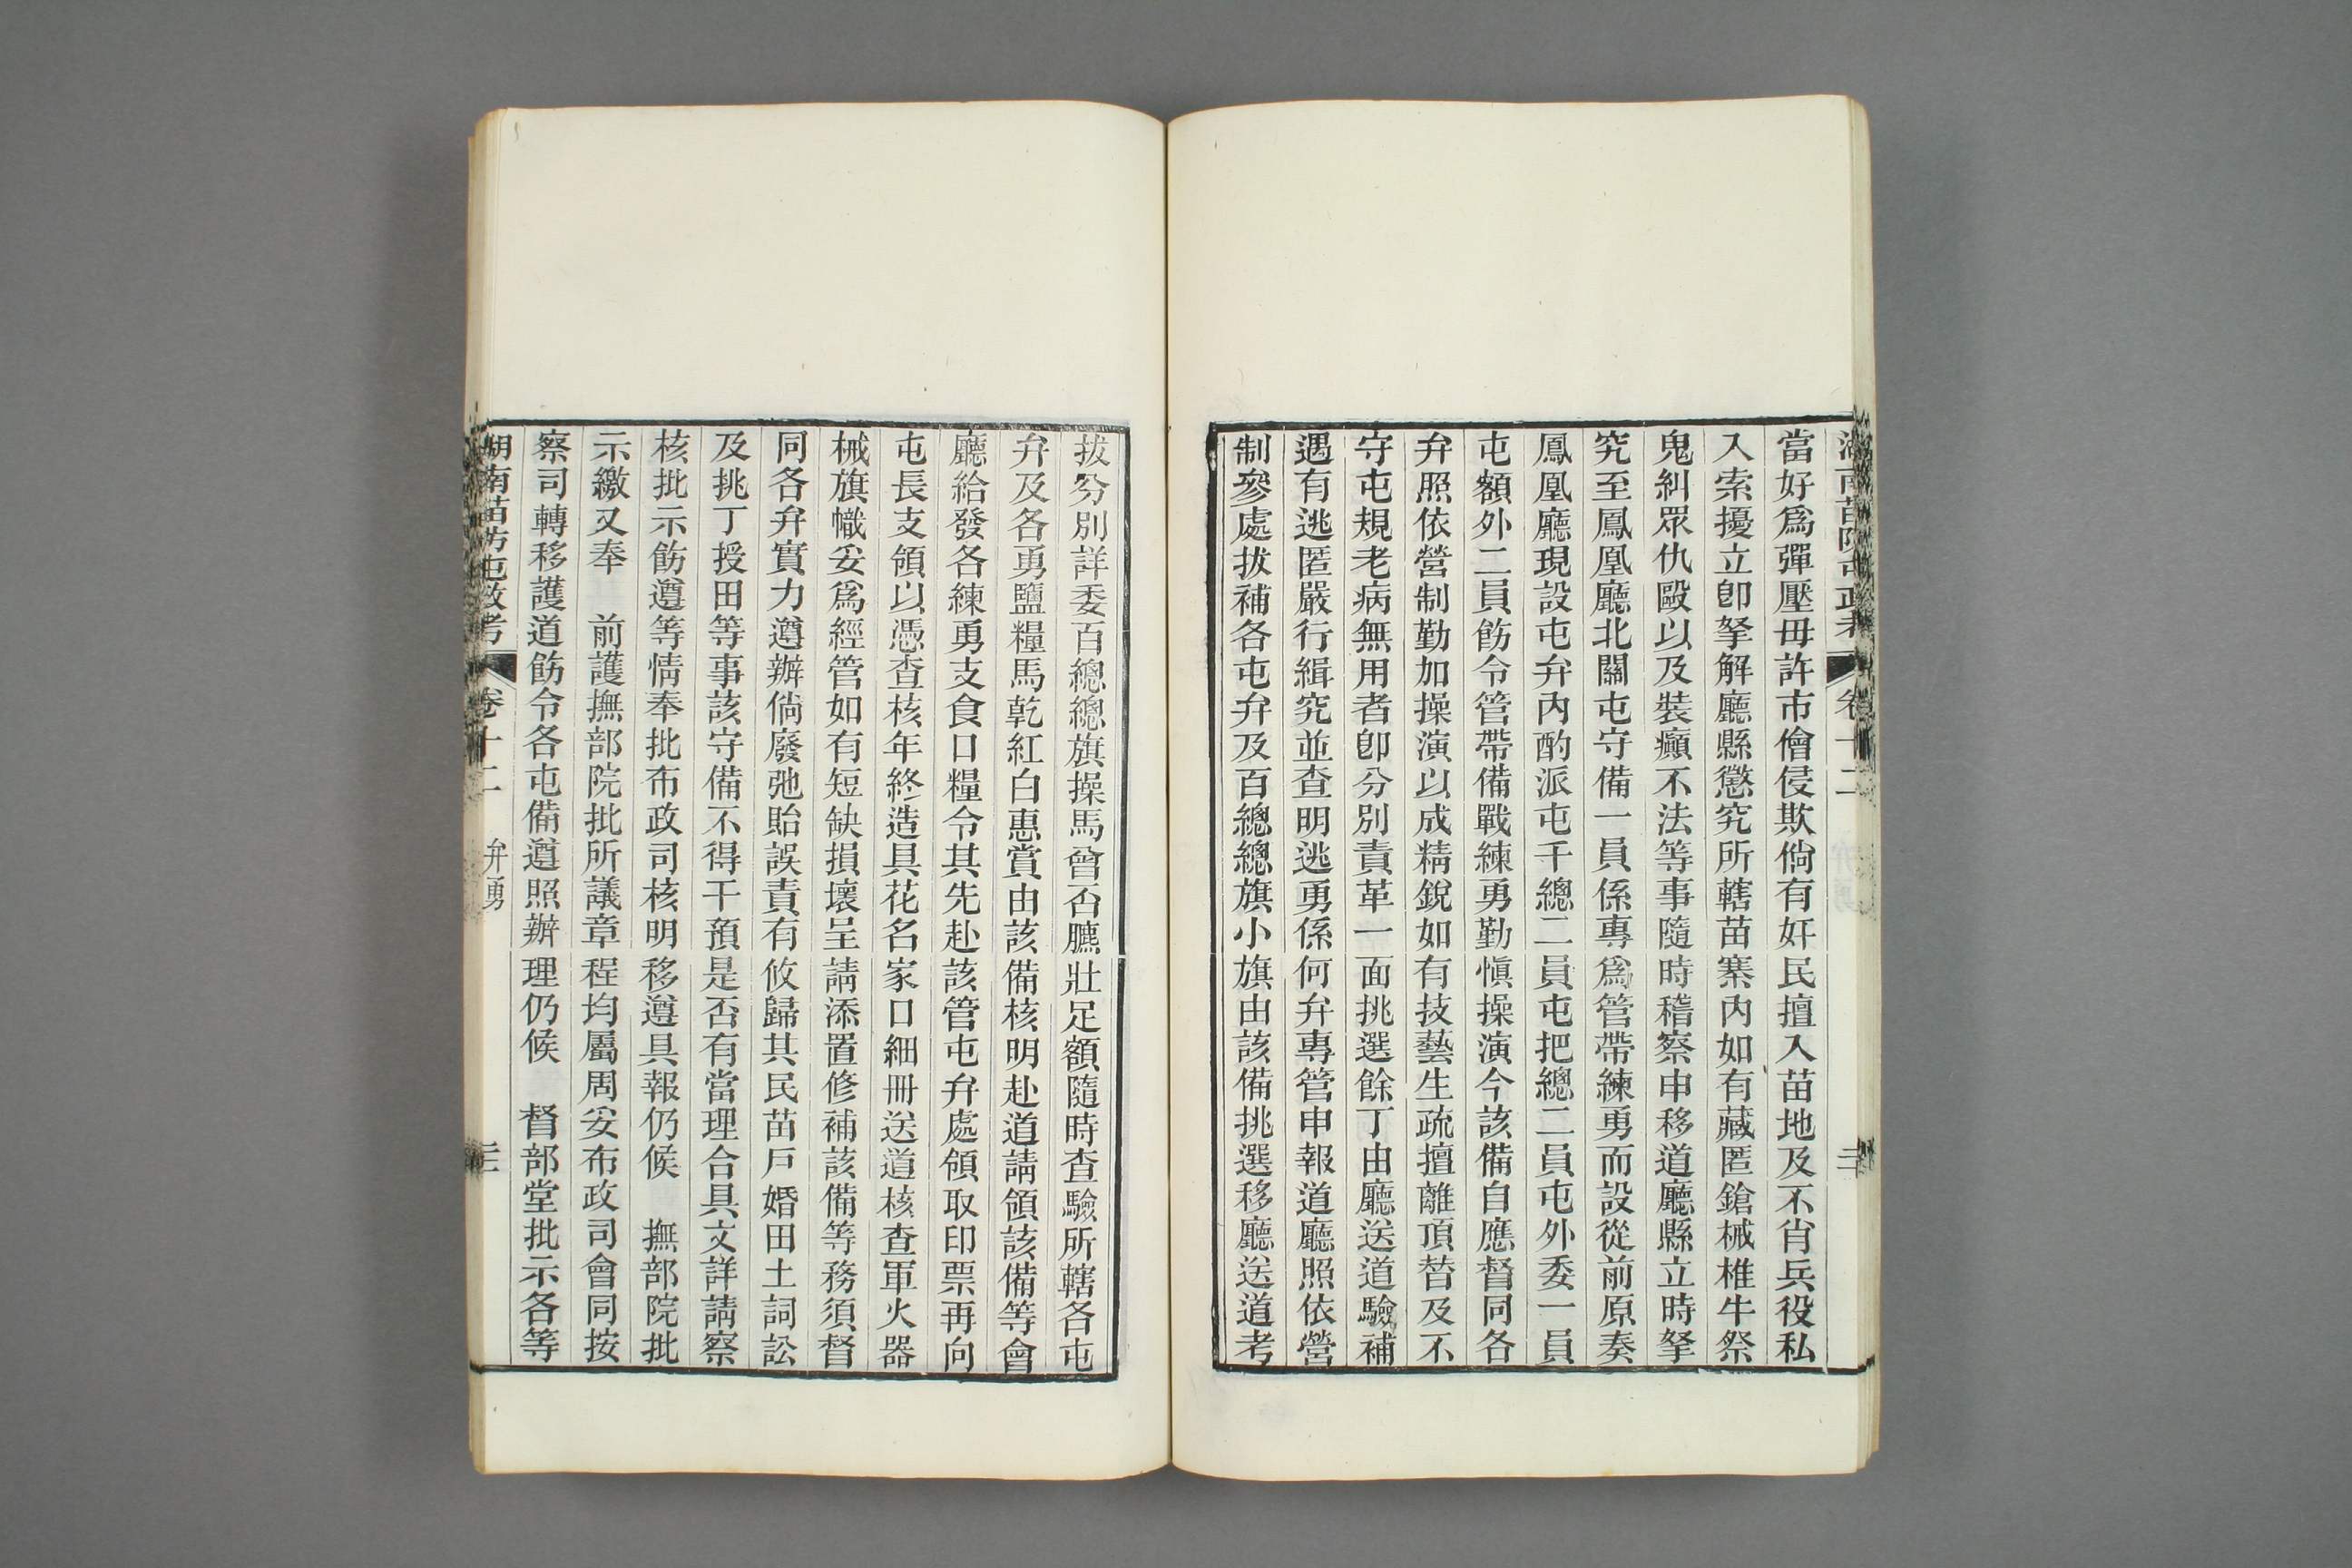 當好爲彈壓毋許市儈侵欺倘有奸民擅入苗地及不肖兵役私
入索擾立卽拏解廳縣懲究所轄苗寨內如有藏匿鎗械椎牛祭
鬼糾眾仇毆以及裝癲不法等事隨時稽察申移道廳縣立時拏
究至鳳凰廳北關屯守備一員係專爲管帶練勇而設從前原奏
鳳凰廳現設屯弁內酌派屯千總二員屯把總二員屯外委一員
屯額外二員飭令管帶備戰練勇勤愼操演今該備自應督同各
弁照依營制勤加操演以成精銳如有技藝生疏擅離頂替及不
守屯規老病無用者卽分別責革一面挑選餘丁由廳送道驗補
遇有逃匿嚴行緝究並查明逃勇係何弁專管申報道廳照依營
制參處拔補各屯弁及百總總旗小旗由該備挑選移廳送道考
拔分別詳委百總總旗操馬曾否臕壯足額隨時查驗所轄各屯
弁及各勇鹽糧馬乾紅白惠賞由該備核明赴道請領該備等會
廳給發各練勇支食口糧令其先赴該管屯弁處領取印票再向
屯長支領以憑查核年終造具花名家口細冊送道核查軍火器
械旗幟妥爲經管如有短缺損壞呈請添置修補該備等務須督
同各弁實力遵辦倘廢弛貽誤責有攸歸其民苗戶婚田土詞訟
及挑丁授田等事該守備不得干預是否有當理合具文詳請察
核批示飭遵等情奉批布政司核明移遵具報仍候　撫部院批
示繳又奉　前護撫部院批所議章程均屬周妥布政司會同按
察司轉移護道飭令各屯備遵照辦理仍候　督部堂批示各等
湖南苗防屯政考　卷十二　弁勇